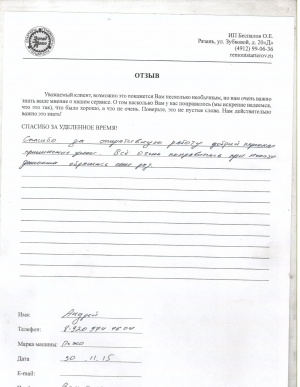 ИП Беспалов О.Е.
Рязань, ул. Зубковой, д. 20«Д»
(4912) 99-06-36
remontstarterov.ru
ОТЗЫВ
Уважаемый клиент, возможно это покажется Вам несколько необычным, но нам очень важно
знать ваше мнение о нашем сервисе. О том насколько Вам у нас понравилось (мы искренне надеемся,
что это так), что было хорошо, а что не очень. Поверьте, это не пустые слова. Нам действительно
важно это знать!
СПАСИБО ЗА УДЕЛЕННОЕ ВРЕМЯ!
Спасибо за оперативную работу добрый
Всё очень понравилось при
обращусь еще раз.
Имя: Андрей
Телефон:
Марка машины: Пежо
Дата 30.11.15
E-mail: